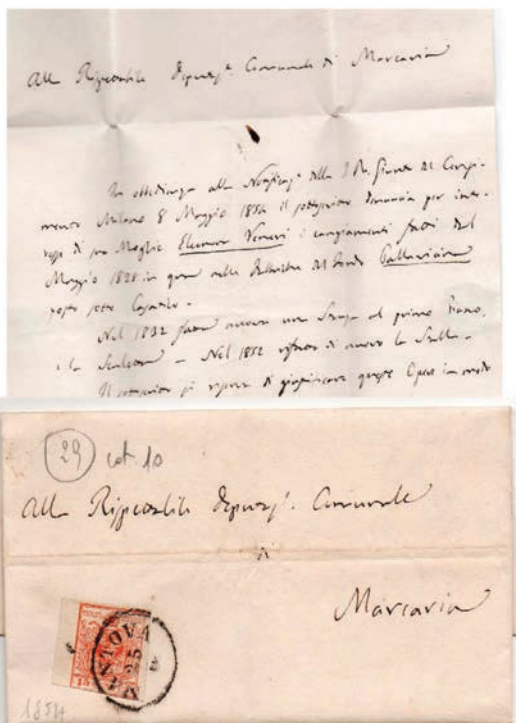 Alla Rispettabile Deputaz.e Comunale di Marcaria
In obbedienza alla Notificaz.e della I. R. Giunta del Censi-
mento Milano 8 Maggio 1854 il sottoscritto denuncia per inte-
di sua Moglie Eleonora i cangiamenti fatti dal
Maggio 1828 in nella del fondo Pallavicina
posto sotto
Nel 1832 fatta nuova una al primo Piano,
e la Nel 1852 di nuovo la Stalla.
Il sottoscritto si di giustificare queste Opere in modo
29 lot 10
Alla Rispettabile Deputaz.e Comunale
di
Marcaria
MANTOVA
25
15
1854